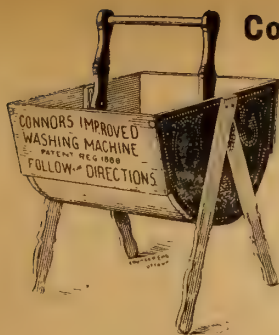 Co
CONNORS IMPROVED
WASHING MACHINE
PATENT REG 1888
FOLLOW DIRECTIONS